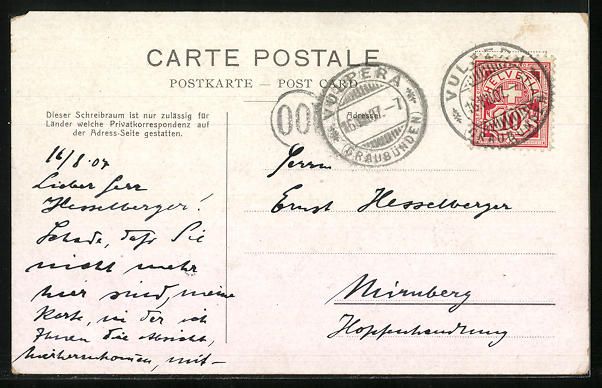 CARTE POSTALE
POSTKARTE — POST CARD
Dieser Schreibraum ist nur zulässig für
Länder welche Privatkorrespondenz auf
der Adress-Seite gestatten.
00
VULPERA
16.VIII.07.-7
(GRAUBÜNDEN)
Adresse:
VULPERA
(GRAUBÜNDEN)
HELVETIA
10
16/8.07
Lieber Herr
Hesselberger!
Schade, daß Sie
nicht mehr
hier sind, meine
Karte, in der ich
Ihnen die
mit-
Herrn
Ernst Hesselberger
Nürnberg
Hopfenhandlung